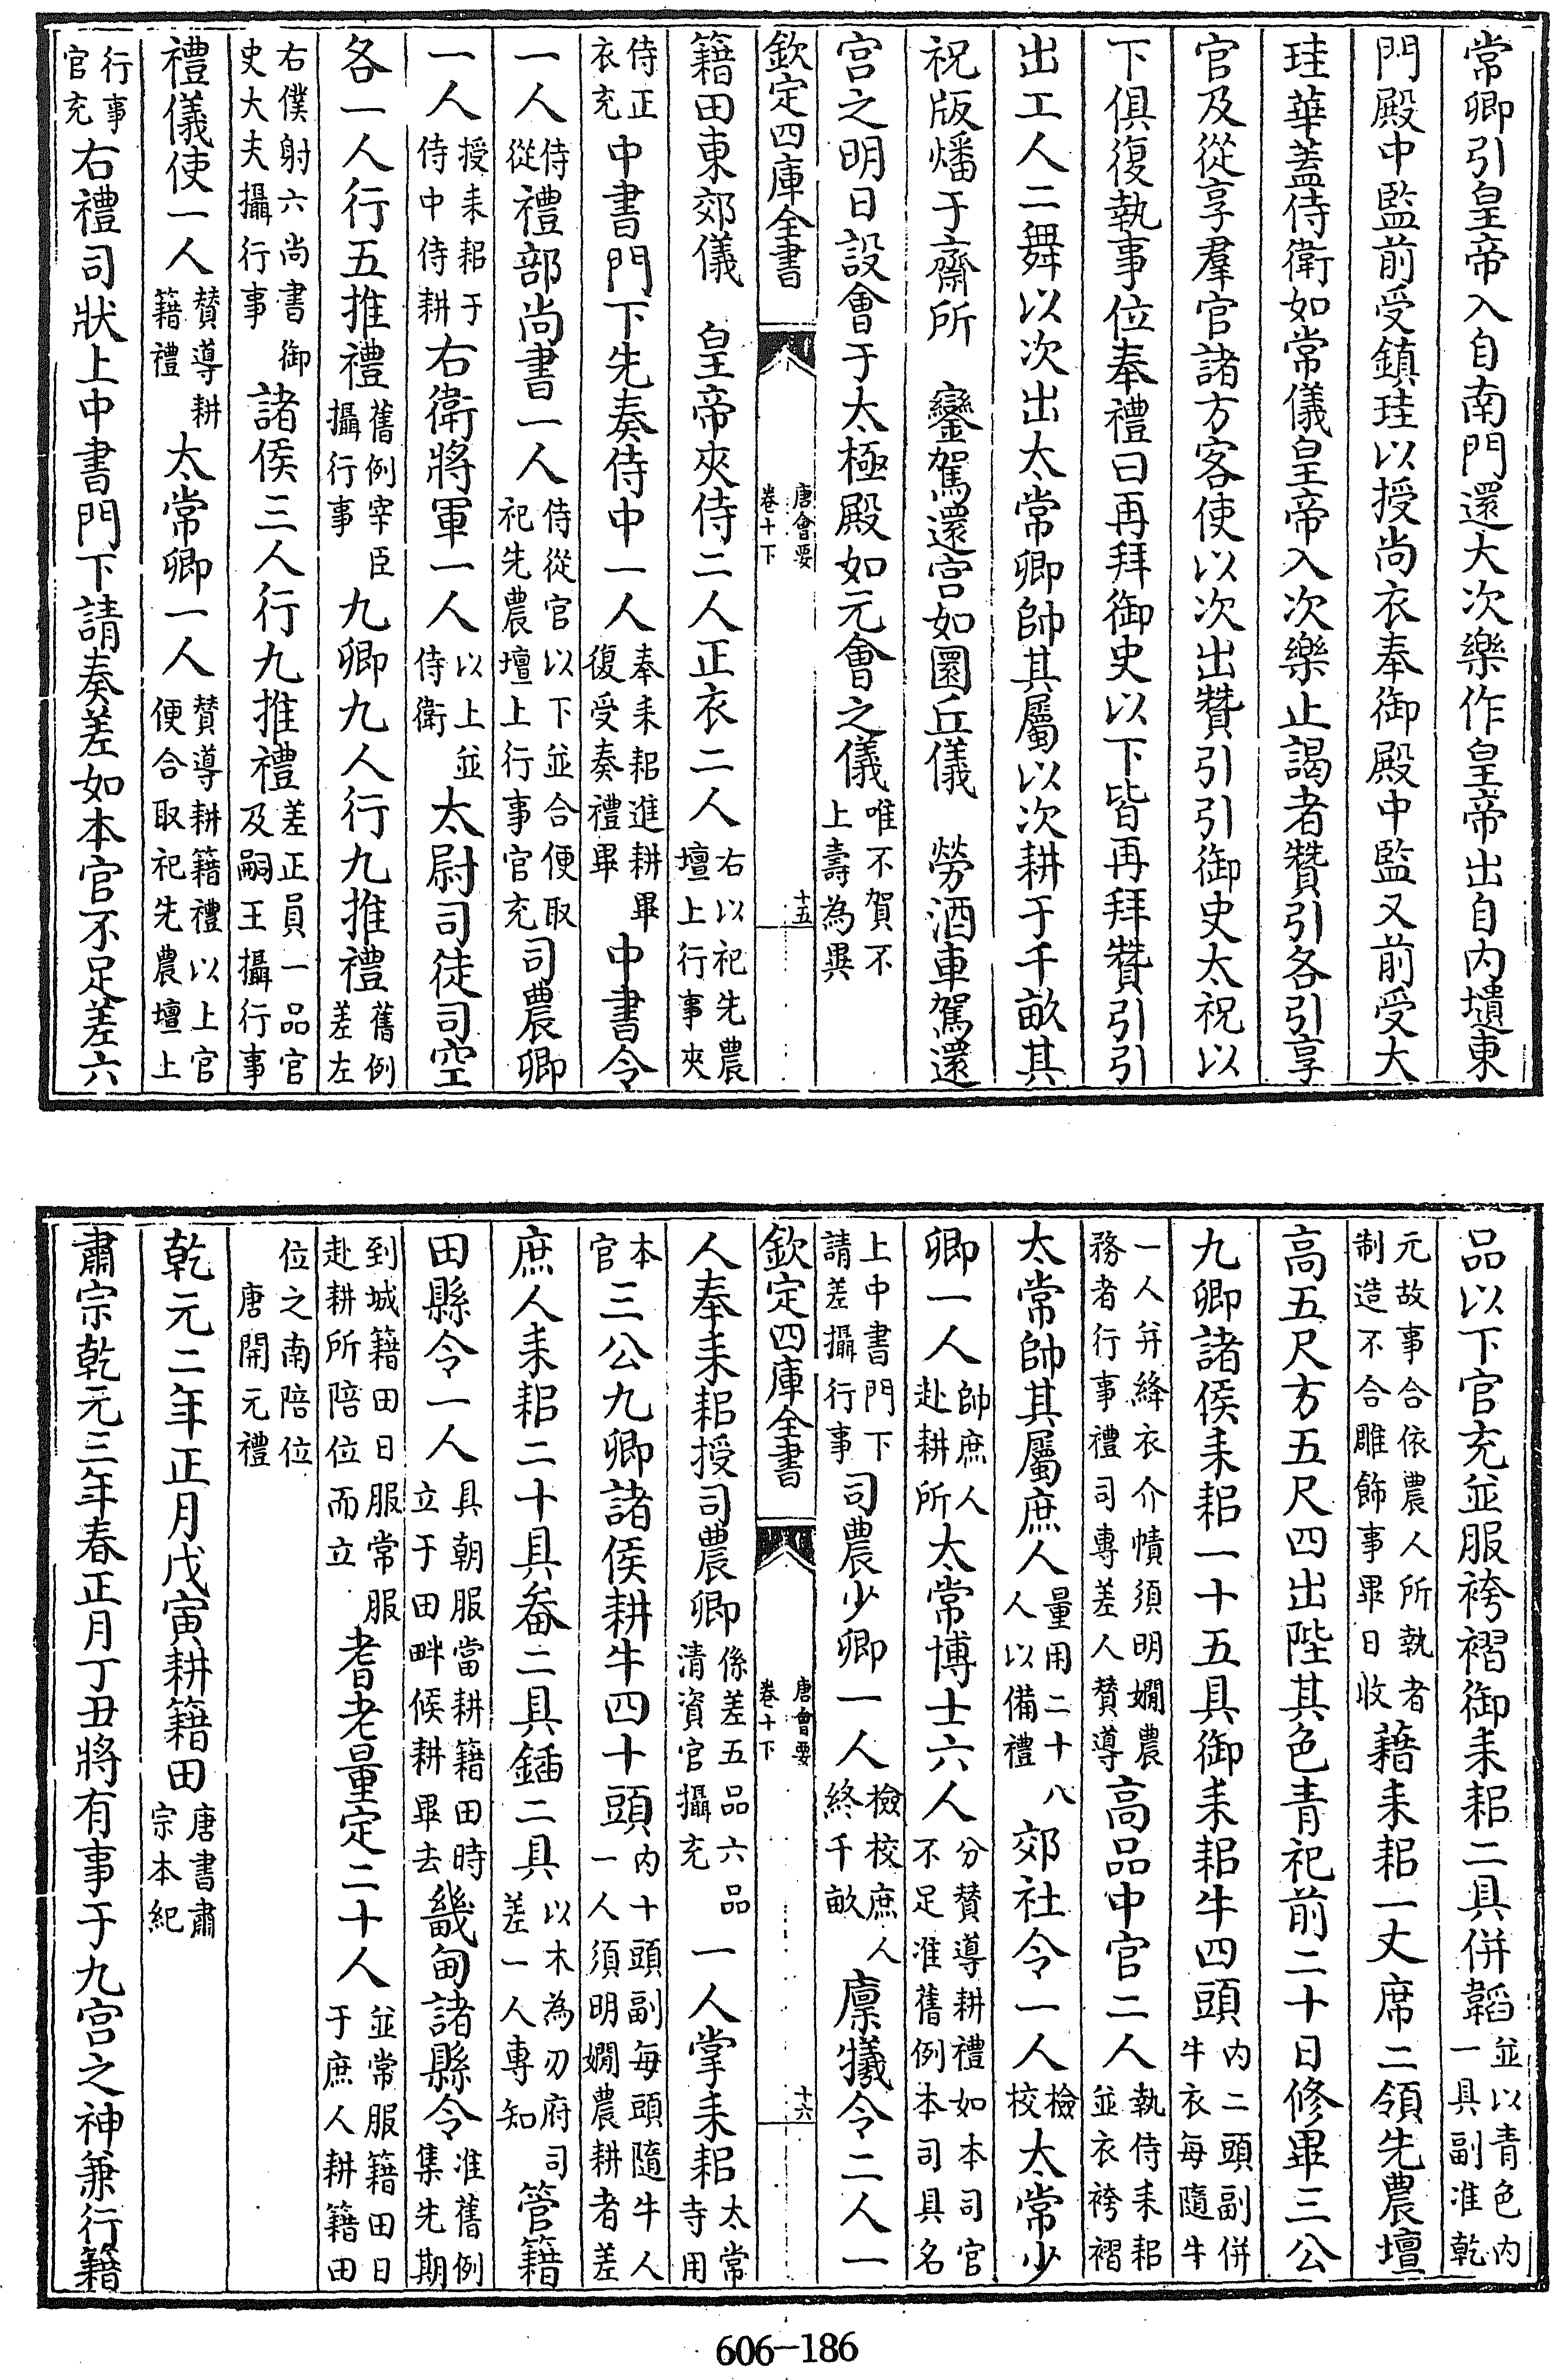 常卿引皇帝入自南門還大次樂作皇帝出自内壝東
門殿中監前受鎮珪以授尚衣奉御殿中監又前受大
珪華蓋侍衛如常儀皇帝入次樂止謁者贊引各引享
官及從享羣官諸方客使以次出贊引引御史太祝以
下俱復執事位奉禮曰再拜御史以下皆再拜贊引引
出工人二舞以次出太常卿帥其屬以次耕于千畝其
祝版燔于齋所　鑾駕還宮如圜丘儀　勞酒車駕還
宮之明日設會于太極殿如元會之儀唯不賀不上壽為異
欽定四庫全書　唐會要卷十下　十五
籍田東郊儀　皇帝夾侍二人正衣二人右以祀先農壇上行事夾
侍正衣充中書門下先奏侍中一人奉耒耜進耕畢復受奏禮畢中書令
一人侍從禮部尚書一人侍從官以下並合便取祀先農壇上行事官充司農卿
一人授耒耜于侍中侍耕右衛將軍一人以上並侍衛太尉司徒司空
各一人行五推禮舊例宰臣攝行事九卿九人行九推禮舊例差左
右僕射六尚書御史大夫攝行事諸侯三人行九推禮差正員一品官及嗣王攝行事
禮儀使一人贊導耕籍禮太常卿一人贊導耕籍禮以上官便合取祀先農壇上
行事官充右禮司狀上中書門下請奏差如本官不足差六
品以下官充並服袴褶御耒耜二具併韜並以青色内一具副准乾
元故事合依農人所執者制造不合雕飾事畢日收藉耒耜一丈席二領先農壇
高五尺方五尺四出陛其色青祀前二十日修畢三公
九卿諸侯耒耜一十五具御耒耜牛四頭内二頭副併牛衣每隨牛
一人并絳衣介幘須明嫺農務者行事禮司專差人贊導高品中官二人執侍耒耜並衣袴褶
太常帥其屬庶人量用二十八人以備禮郊社令一人檢校太常少
卿一人帥庶人赴耕所太常博士六人分贊導耕禮如本司官不足准舊例本司具名
上中書門下請差攝行事司農少卿一人檢校庶人終千畝廩犧令二人一
欽定四庫全書　唐會要卷十下　十六
人奉耒耜授司農卿係差五品六品清資官攝充一人掌耒耜太常寺用
本官三公九卿諸侯耕牛四十頭内十頭副每頭隨牛人一人須明嫺農耕者差
庶人耒耜二十具畚二具鍤二具以木為刃府司差一人專知管籍
田縣令一人具朝服當耕籍田時立于田畔候耕畢去畿甸諸縣令准舊例集先期
到城籍田日服常服赴耕所陪位而立耆老量定二十人並常服籍田日于庶人耕籍田
位之南陪位唐開元禮
乾元二年正月戊寅耕籍田唐書肅宗本紀
肅宗乾元三年春正月丁丑將有事于九宮之神兼行籍
606-186